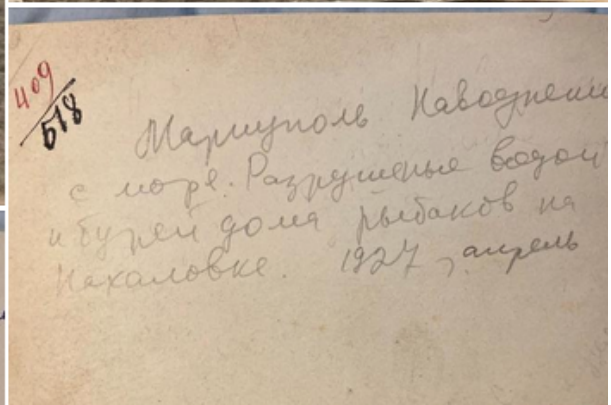 409
518
Мариуполь Наводнение
с моря. Разрушенные водой
и бурей дома рыбаков на
Нахаловке. 1927, апрель